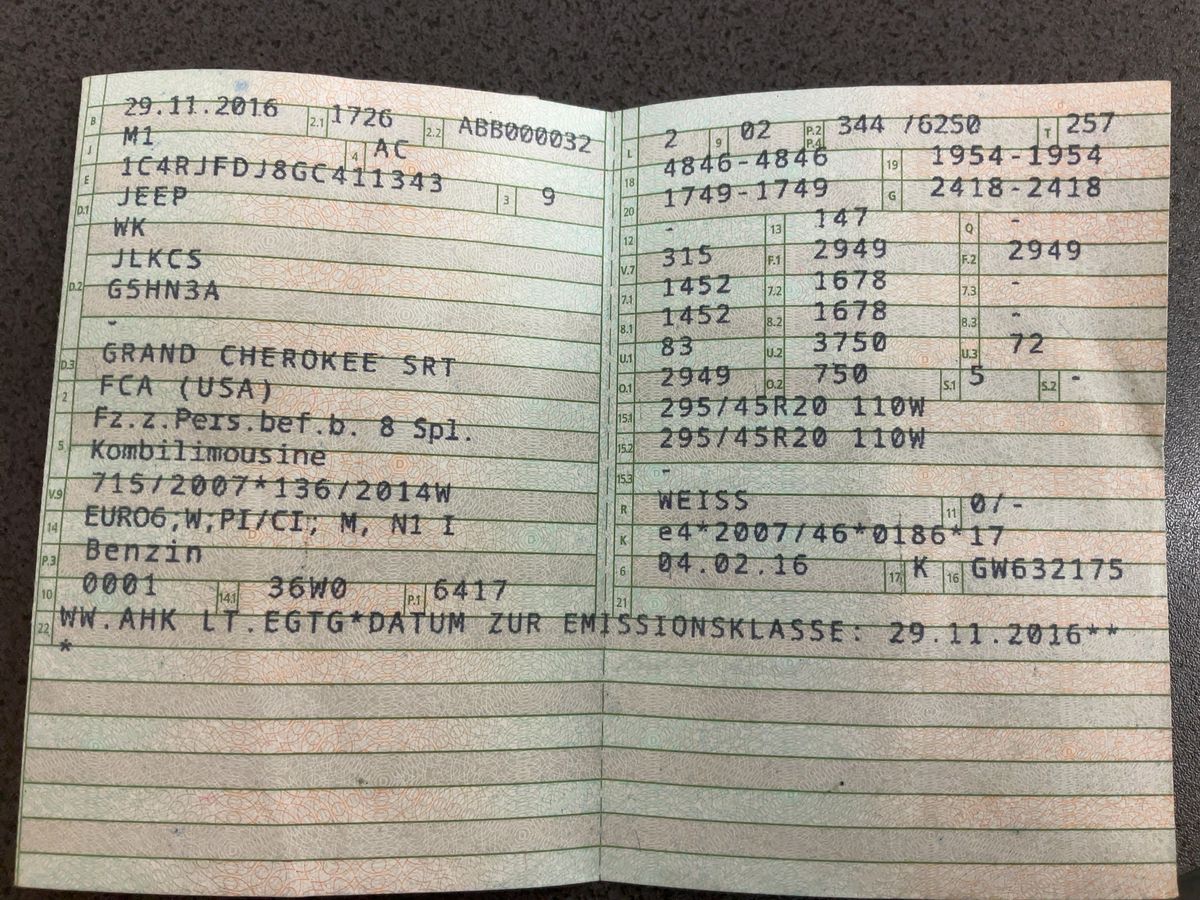 B 29.11.2016 2.1 1726 2.2 ABB000032
J M1 4 AC
E 1C4RJFDJ8GC411343 3 9
D.1 JEEP
D.2 WK
JLKCS
G5HN3A
-
D.3 GRAND CHEROKEE SRT
2 FCA (USA)
5 Fz.z.Pers.bef.b. 8 Spl.
Kombilimousine
V.9 715/2007*136/2014W
14 EURO6;W;PI/CI; M, N1 I
P.3 Benzin
10 0001 14.1 36W0 P.1 6417
L 2 9 02 P.2 P.4 344 /6250 T 257
18 4846-4846 19 1954-1954
20 1749-1749 G 2418-2418
12 - 13 147 Q -
V.7 315 F.1 2949 F.2 2949
7.1 1452 7.2 1678 7.3 -
8.1 1452 8.2 1678 8.3 -
U.1 83 U.2 3750 U.3 72
O.1 2949 O.2 750 S.1 5 S.2 -
15.1 295/45R20 110W
15.2 295/45R20 110W
15.3 -
R WEISS 11 0/-
K e4*2007/46*0186*17
6 04.02.16 17 K 16 GW632175
21
22 WW.AHK LT.EGTG*DATUM ZUR EMISSIONSKLASSE: 29.11.2016**
*